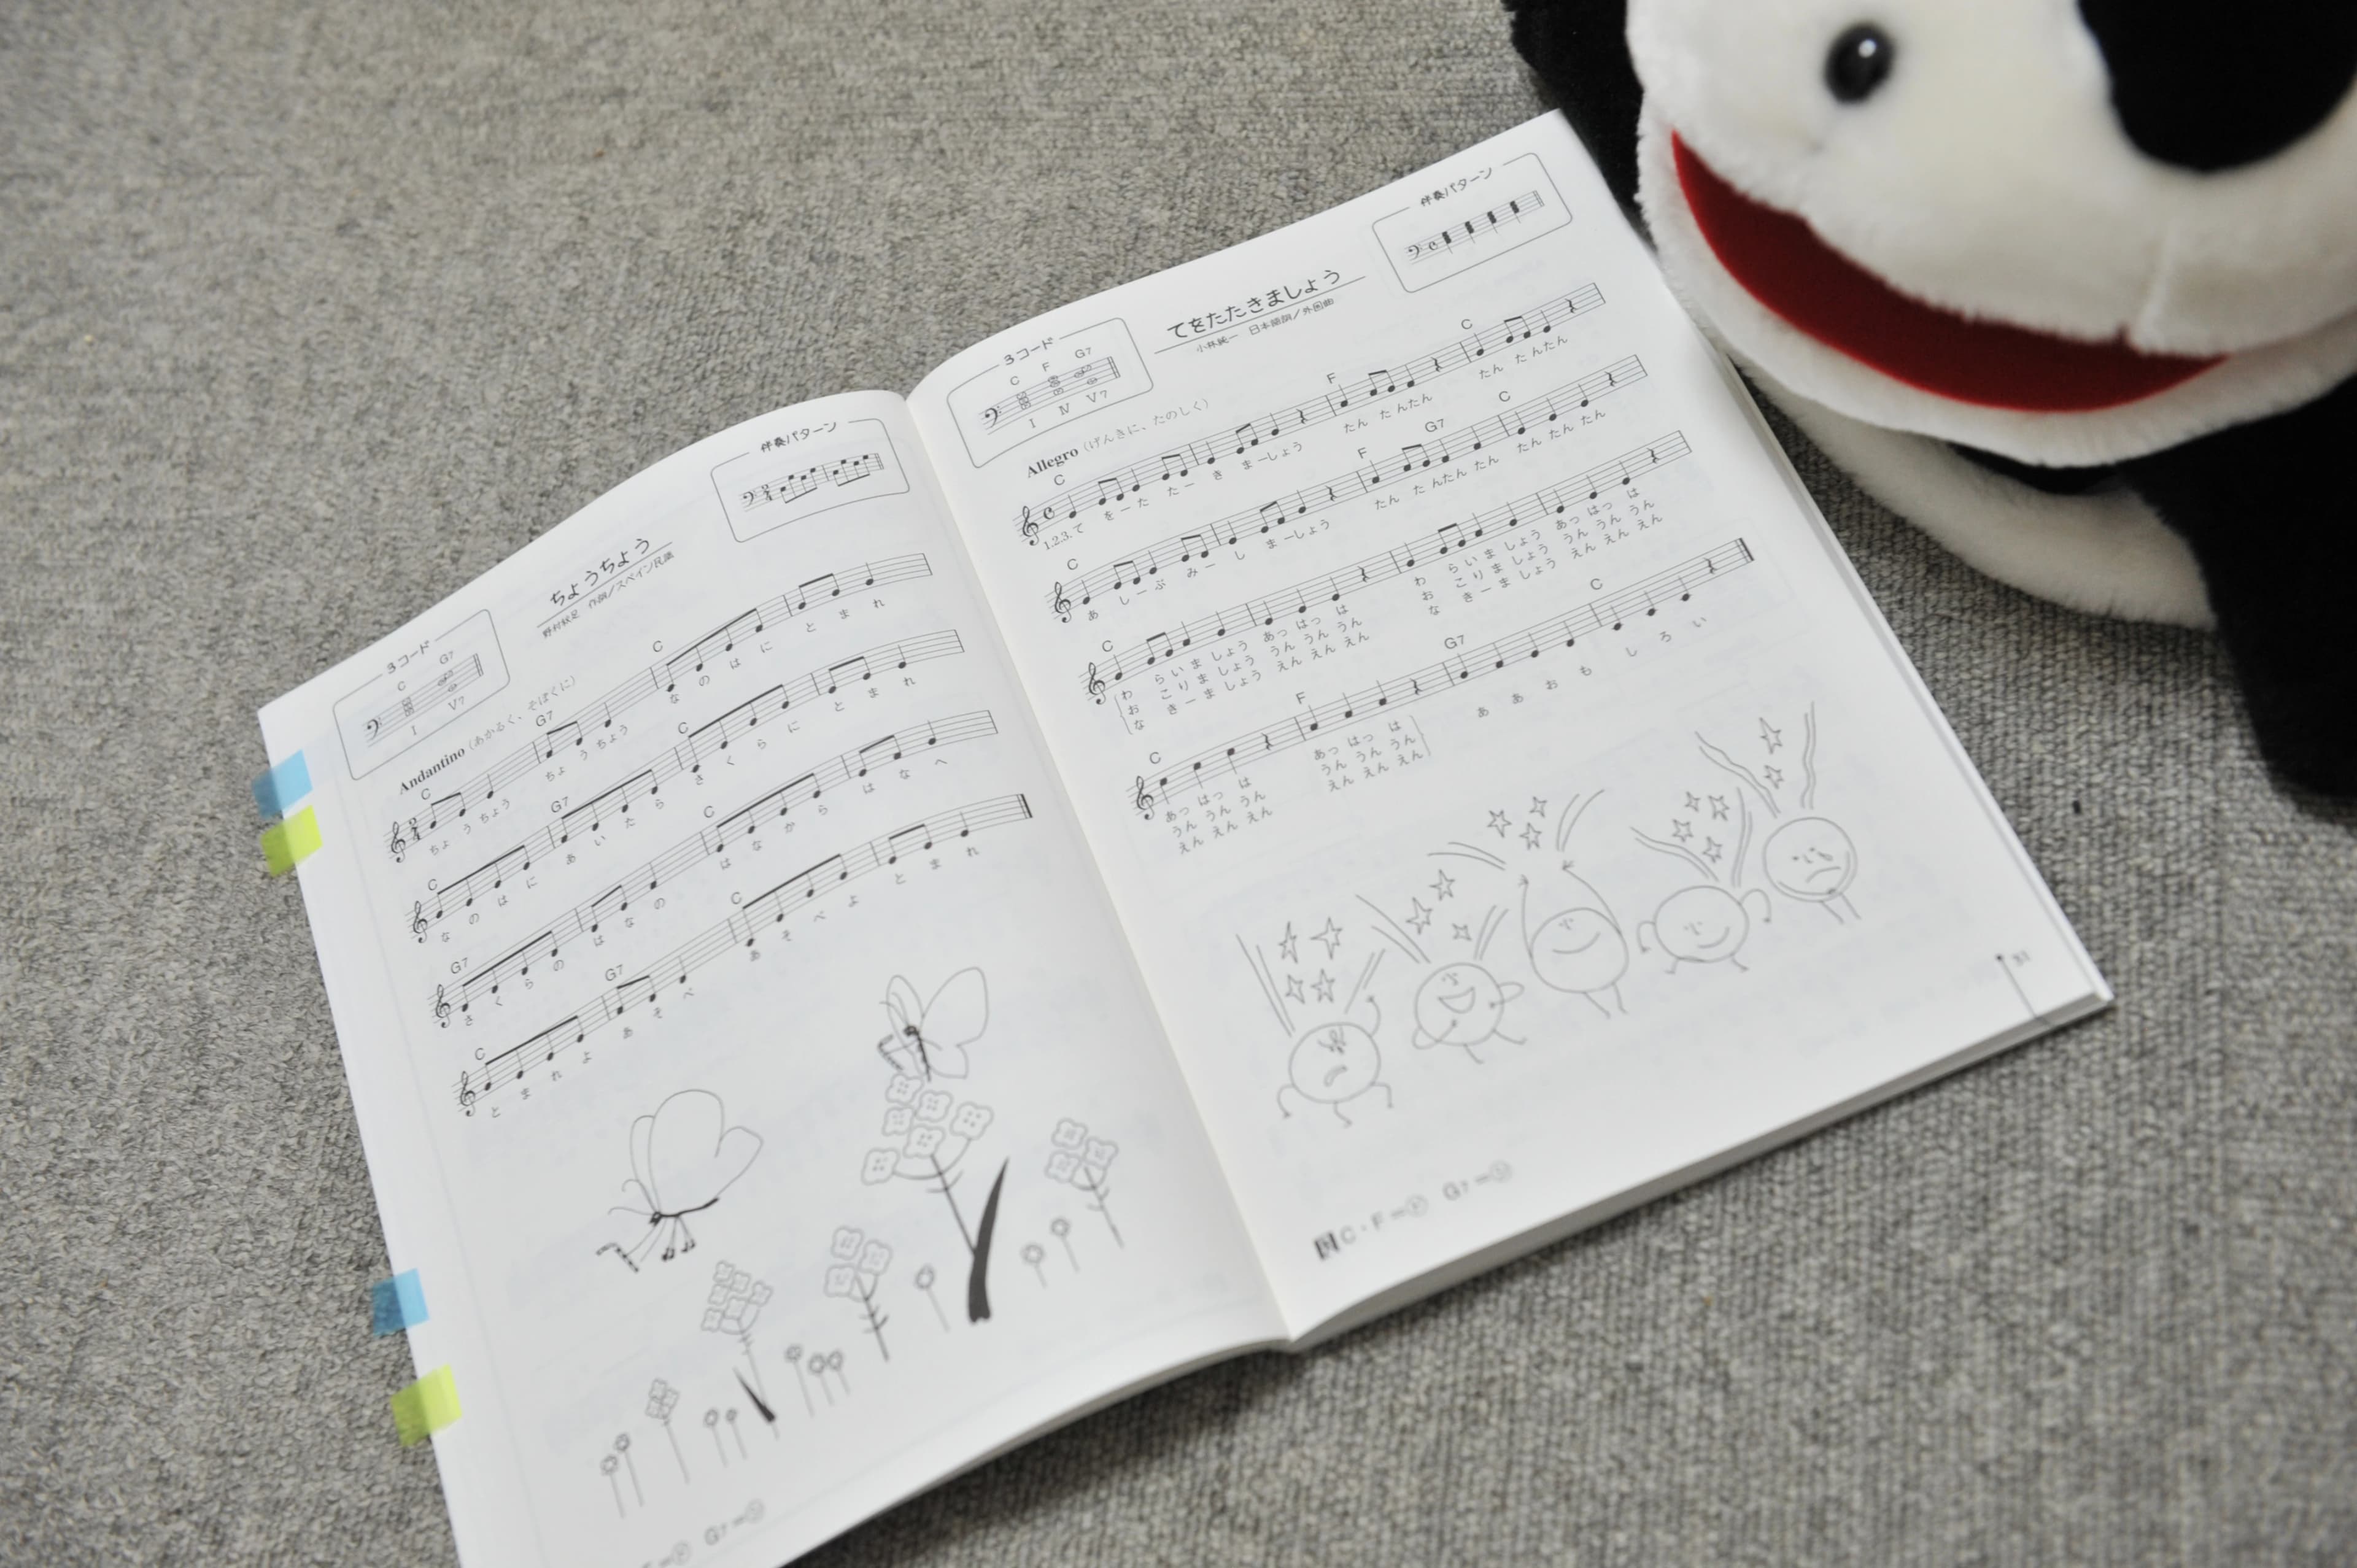 3コード
C G7
I V7
ちょうちょう
野村秋足 作詞/スペイン民謡
伴奏パターン
Andantino (あかるく、そぼくに)
C G7 C
ちょ う ちょう ちょ う ちょう な の は に と ま れ
C G7 C
な の は に あ い た ら さ く ら に と ま れ
G7 C
さ く ら の は な の は な か ら は な へ
C G7 C
と ま れ よ あ そ べ あ そ べ よ と ま れ
G7=
3コード
C F G7
I IV V7
てをたたきましょう
小林純一 日本語詞/外国曲
伴奏パターン
Allegro (げんきに、たのしく)
C F C
1.2.3.て をーた たー き まーしょう たん た んたん たん た んたん
C F G7 C
あ しーぶ みー し まーしょう たん た んたん たん たん たん たん
C
わ らいま しょう あっ はっ は わ らいま しょう あっ はっ は
お こりま しょう うん うん うん お こりま しょう うん うん うん
な きーま しょう えん えん えん な きーま しょう えん えん えん
C F G7 C
あっ はっ は あっ はっ は ああおもしろい
うん うん うん うん うん うん
えん えん えん えん えん えん
C・F= G7=